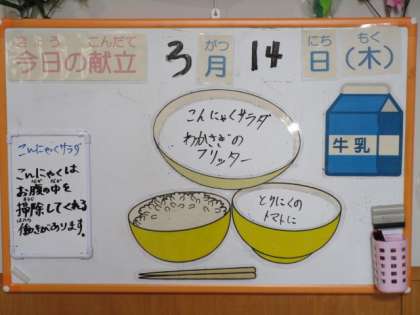 きょう こんだて
今日の献立
3 がつ 14 にち もく
月 日(木)
こんにゃくサラダ
わかさぎの
フリッター
牛乳
こんにゃくサラダ
こんにゃくは
お腹の中を
掃除してくれる
働きがあります。
とりにくの
トマトに